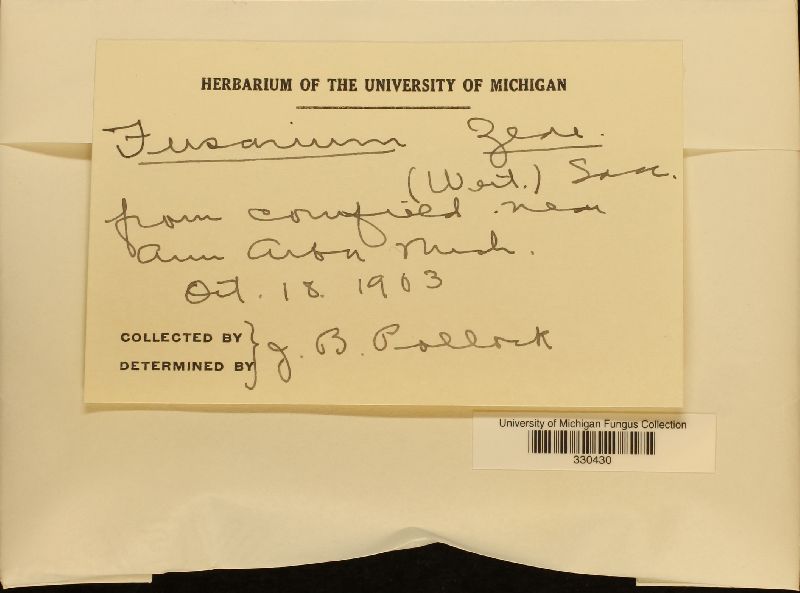 HERBARIUM OF THE UNIVERSITY OF MICHIGAN
Fusarium Zeae.
(West.) Sacc.
from cornfield near
Ann Arbor Mich.
Oct. 18. 1903
COLLECTED BY
DETERMINED BY } J. B. Pollock
University of Michigan Fungus Collection
330430